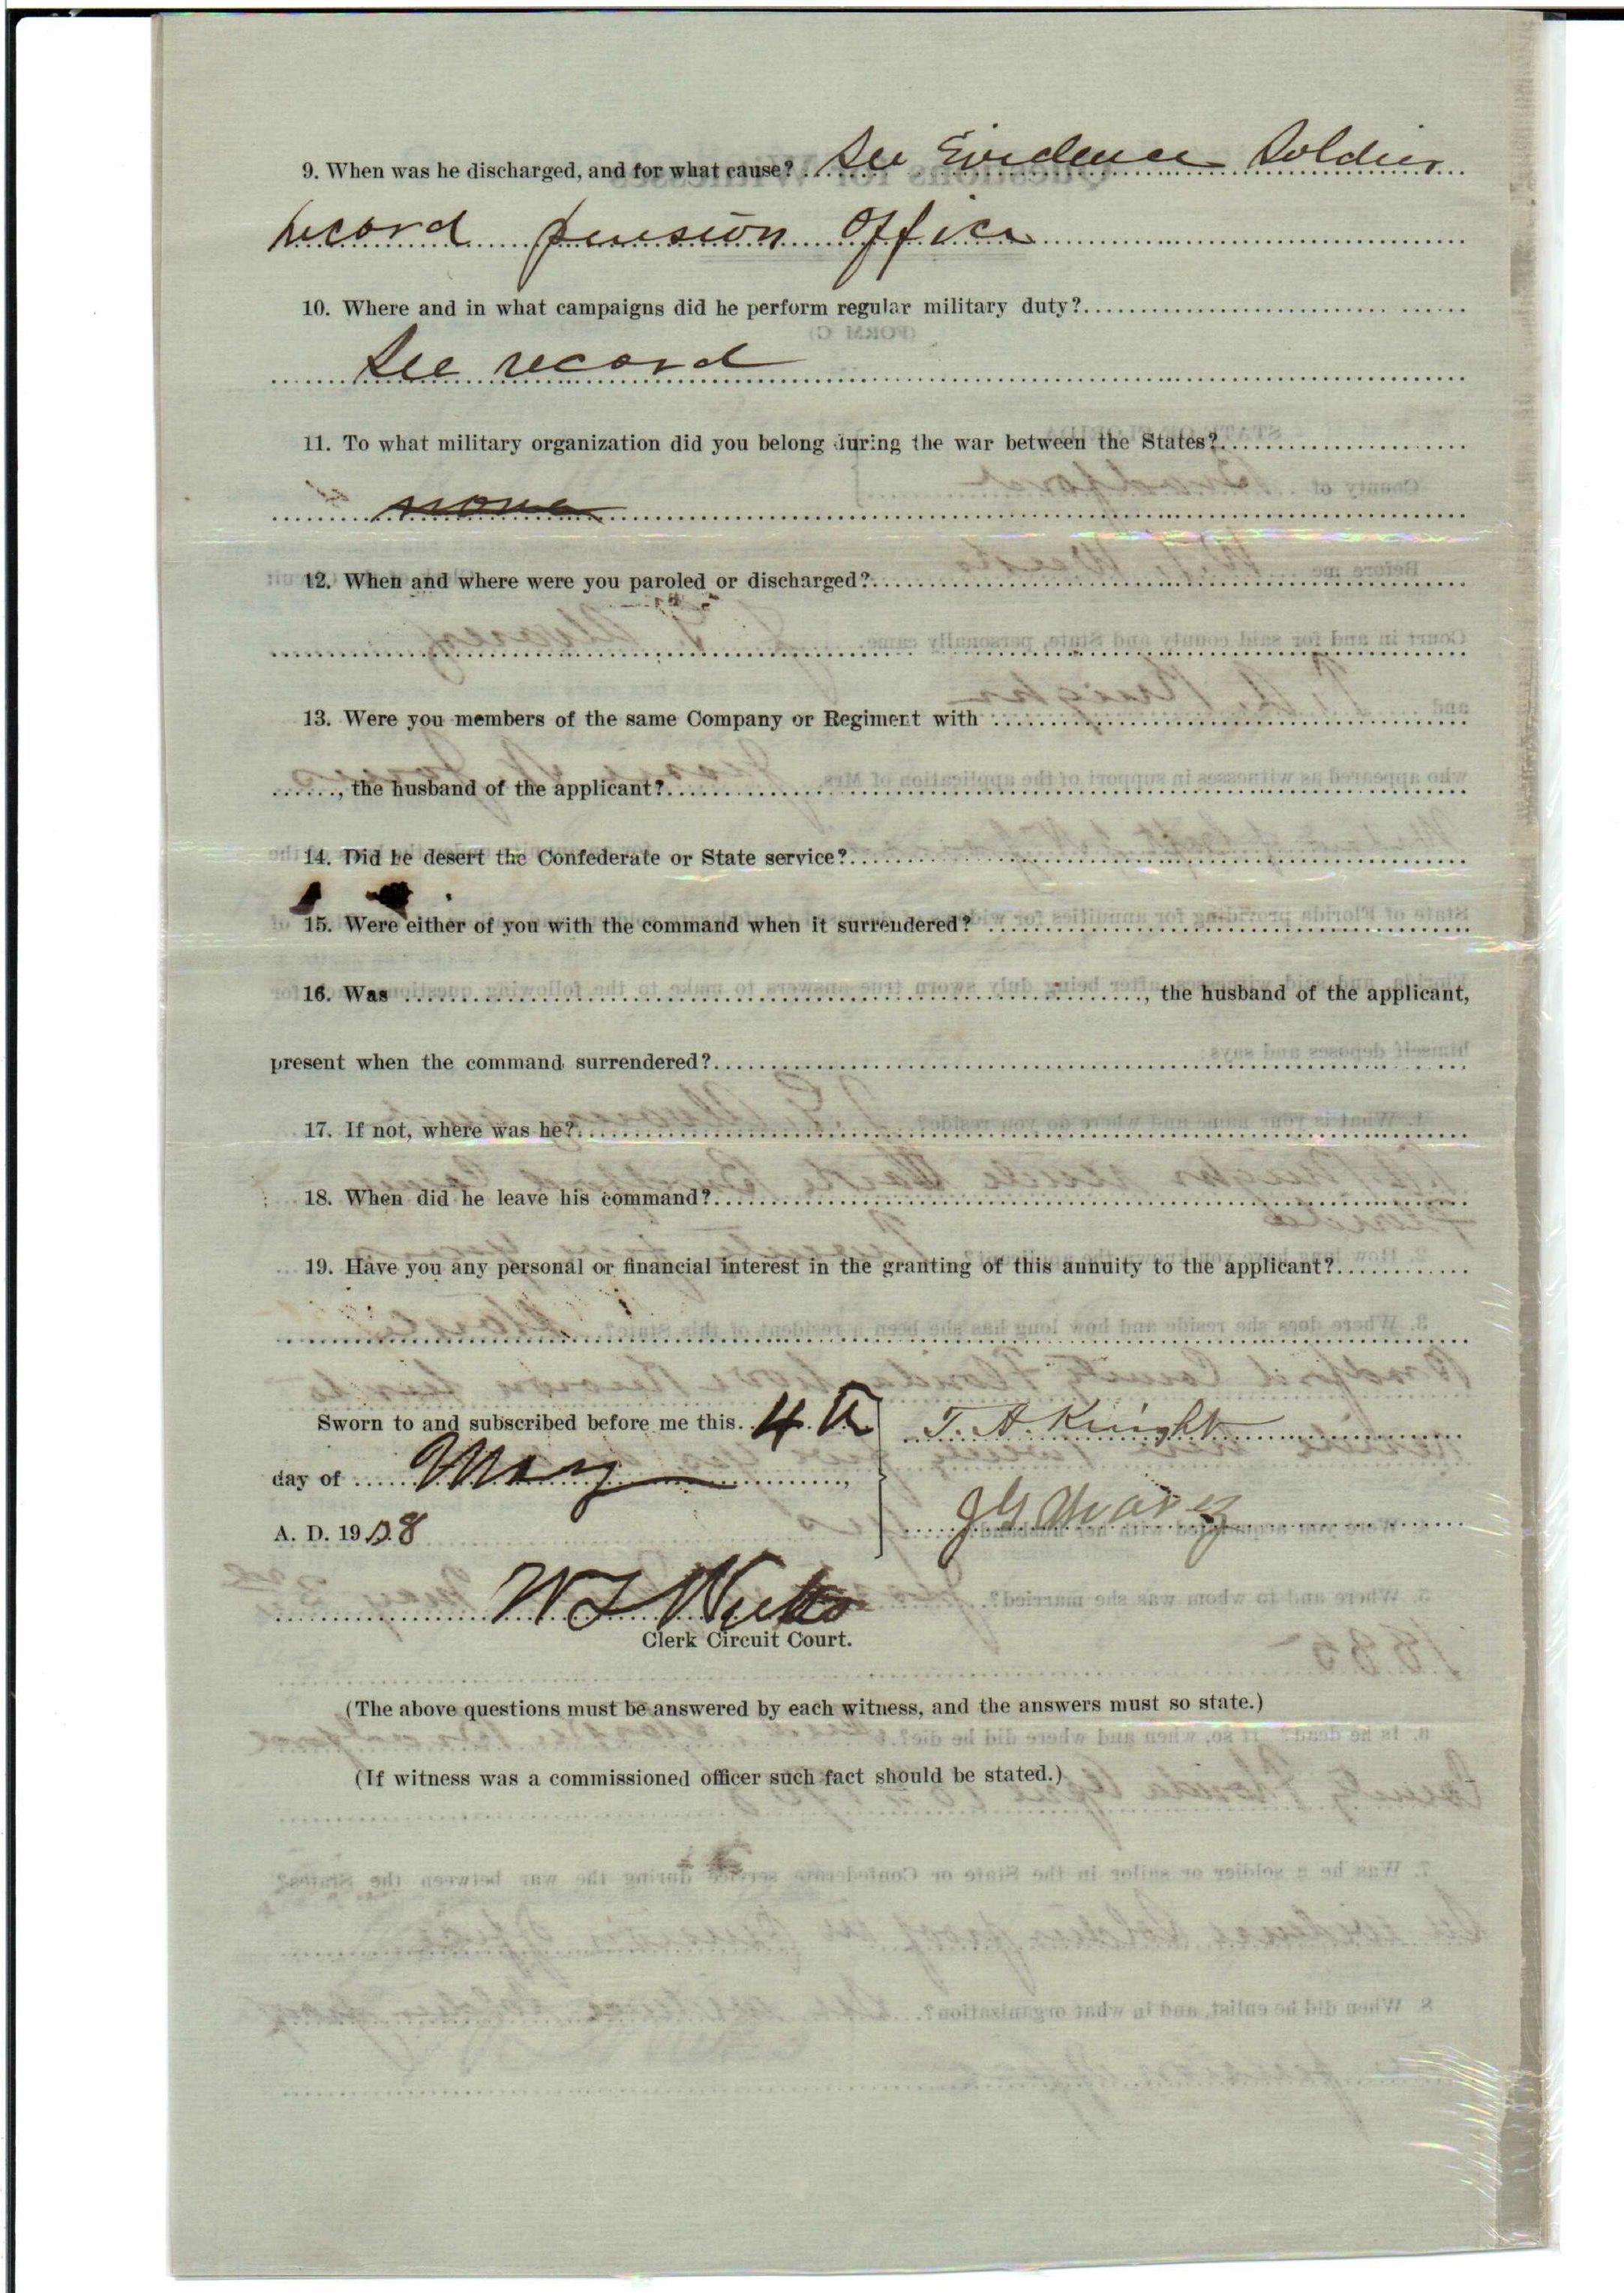 9. When was he discharged, and for what cause? See Evidence Soldier
record pension office
10. Where and in what campaigns did he perform regular military duty?
See record
11. To what military organization did you belong during the war between the States?
none
12. When and where were you paroled or discharged?
13. Were you members of the same Company or Regiment with
, the husband of the applicant?
14. Did he desert the Confederate or State service?
15. Were either of you with the command when it surrendered?
16. Was , the husband of the applicant,
present when the command surrendered?
17. If not, where was he?
18. When did he leave his command?
19. Have you any personal or financial interest in the granting of this annuity to the applicant?
Sworn to and subscribed before me this 4th
T. A. Knight
day of May,
J G Alvarez
A. D. 1908
Clerk Circuit Court.
(The above questions must be answered by each witness, and the answers must so state.)
(If witness was a commissioned officer such fact should be stated.)